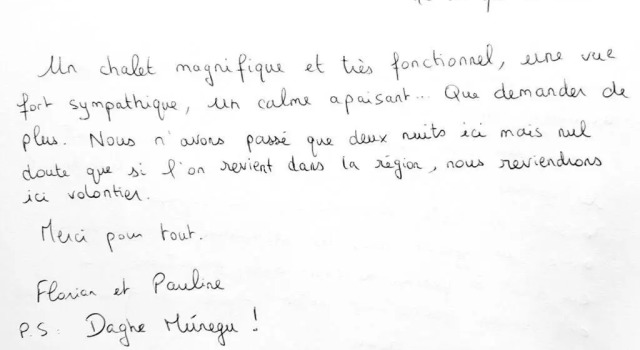 Un chalet magnifique et très fonctionnel, une vue
fort sympathique, un calme apaisant... Que demander de
plus. Nous n'avons passé que deux nuits ici mais nul
doute que si l'on revient dans la région, nous reviendrons
ici volontier.
Merci pour tout.
Florian et Pauline
P.S: Daghe Múnegu !